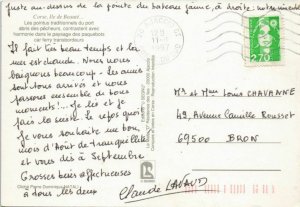 juste au-dessus de la pointe du bateau jaune, à droite, nous avons
Corse. Ile de Beauté...
Les pointus traditionnels du port
abris des pêcheurs, contrastent avec
harmonie dans le paysage des paquebots
car ferry transbordeurs
2,70
Il fait très beau temps et la
mer est chaude. Nous nous
baignons beaucoup. Les amis
sont tous arrivés et nous
passons ensemble de bons
moments... Je lis et je
fais la sieste. Le repos quoi
Je vous souhaite un bon
mois d'Août de tranquillité
et vous dis à Septembre
Grosses bises affectueuses
à tous les deux
Claude LAVAUD
Mr et Mme Louis CHAVANNE
49, Avenue Camille Rousset
69500 BRON
Cliché Pierre Dominique